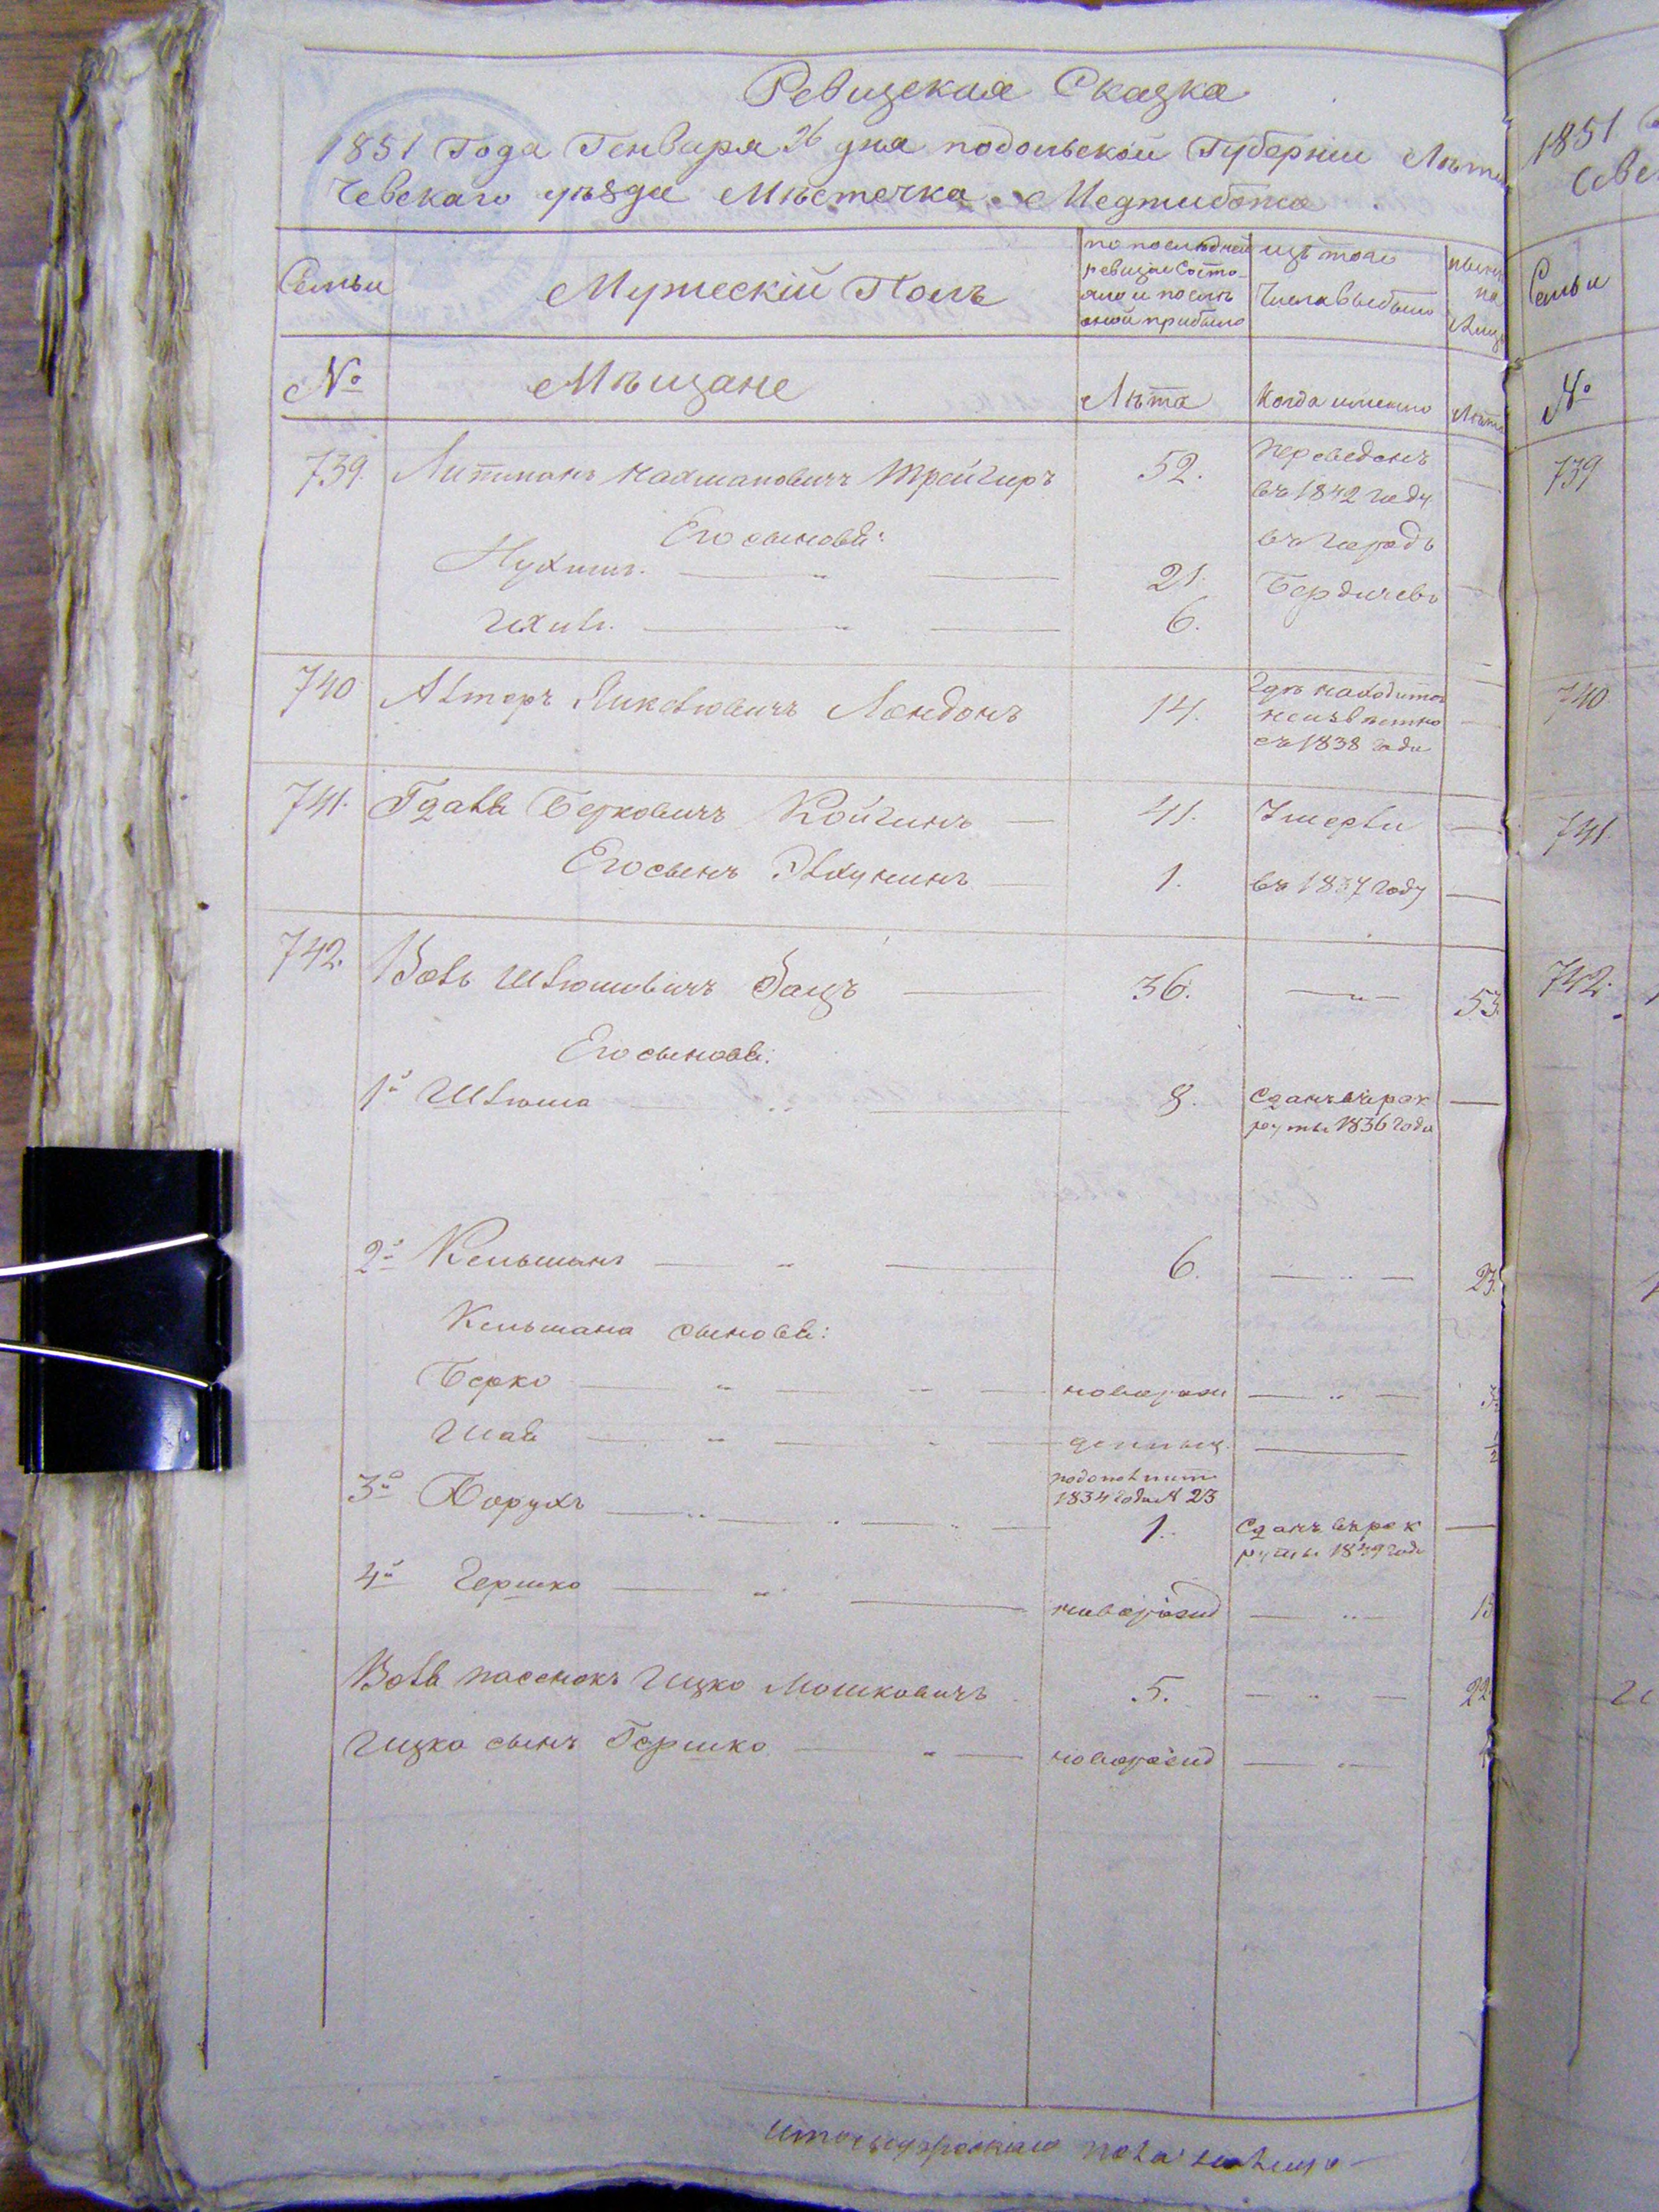 Ревизская Сказка
1851 Года Генваря 26 дня подольской Губернии Лѣти
чевскаго уѣзда Мѣстечка Меджибожа
Семьи
Мужескій Полъ
по послѣдней ревизіи состо яло и послѣ оной прибыло
изъ того числа выбыло
нынѣ на лицо
№
Мѣщане
Лѣта
Когда именно
Лѣта
739. Литманъ Нахмановичъ Трейгиръ 52. переведенъ
въ 1842 году
Его сыновя: въ городъ
Нухимъ. 21. Бердичевъ
6.
740 Алтеръ Лондонъ 14. Гдѣ находится
неизвѣстно
съ 1838 года
741. Беркович Койгинъ 41. Умерли
Его сынъ 1. въ 1837 году
742. Волъ Шлюмовичъ Зацъ 36. 53.
Его сыновя:
1й Шлюма 8. Сданъ въ рек
руты 1836 года
2й Кельманъ 6. 23.
Кельмана сынове:
Берко новорож
денны
3й Борухъ
1834 года № 23
1. Сданъ въ рек
руты 1849 года
4й Гершко новорожд
Воля пасенокъ Ицко Мошковичъ 5. 22
Ицка сынъ Гершко новорожд
Итого мужескаго пола на лицо
1851
Семьи
№
739
740
741
742.